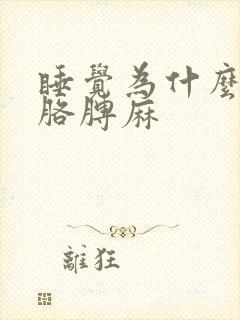 睡覺為什麼
胳脾麻
離狂